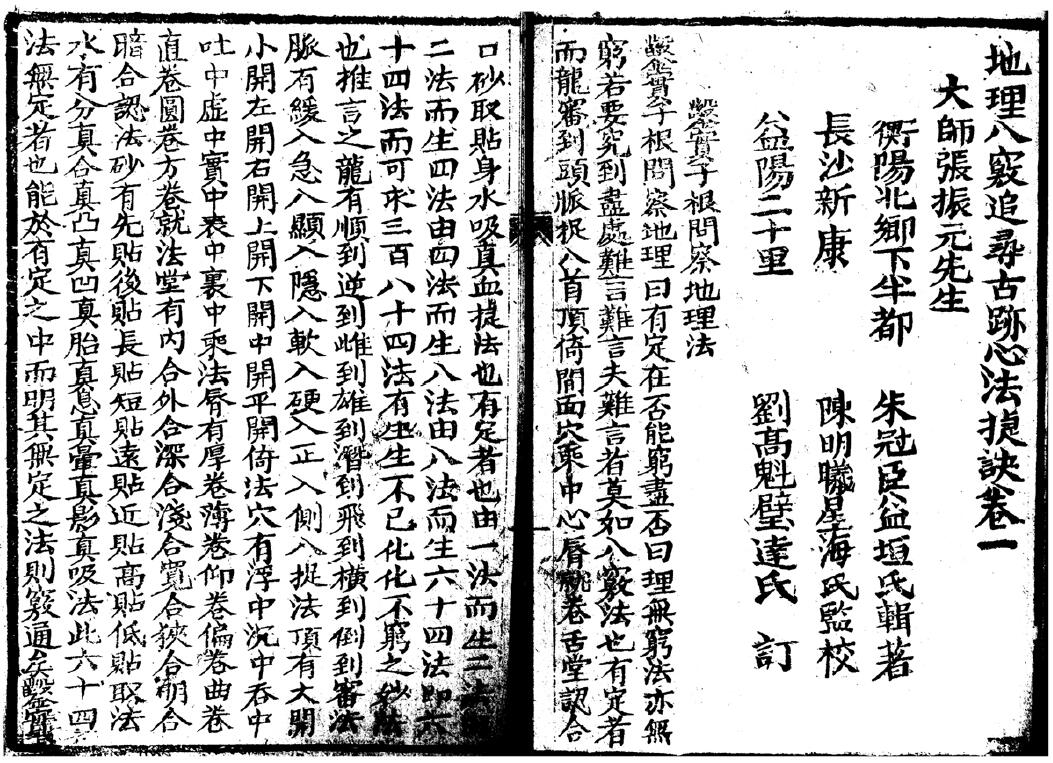 地理八竅追尋古跡心法捷訣卷一
大師張振元先生
衡陽北鄉下半都 朱冠臣益垣氏輯著
長沙新康 陳明曦星海氏監校
益陽二十里 劉高魁璧達氏 訂
鑿實子根問察地理法
鑿實子根問察地理曰有定在否能窮盡否曰理無窮法亦無
窮若要究到盡處難言難言夫難言者莫如八竅法也有定者
而龍審到頭脈捉入首頂倚開面穴乘中心唇 卷舌堂認合
口砂取貼身水吸真血捷法也有定者也由一法而生二法
二法而生四法由四法而生八法由八法而生六十四法即六
十四法而可求三百八十四法有生生不已化化不窮之妙法
也推言之龍有順到逆到雌到雄到潛到飛到橫到倒到審法
脈有緩入急入顯入隱入軟入硬入正入側入捉法頂有大開
小開左開右開上開下開中開平開倚法穴有浮中沉中吞中
吐中虛中實中表中裏中乘法唇有厚卷薄卷仰卷偏卷曲卷
直卷圓卷方卷就法堂有內合外合深合淺合寬合狹合明合
暗合認法砂有先貼後貼長貼短貼遠貼近貼高貼低貼取法
水有分真合真凸真凹真胎真息真暈真影真吸法此六十四
法無定者也能於有定之中而明其無定之法則竅通矣鑿實